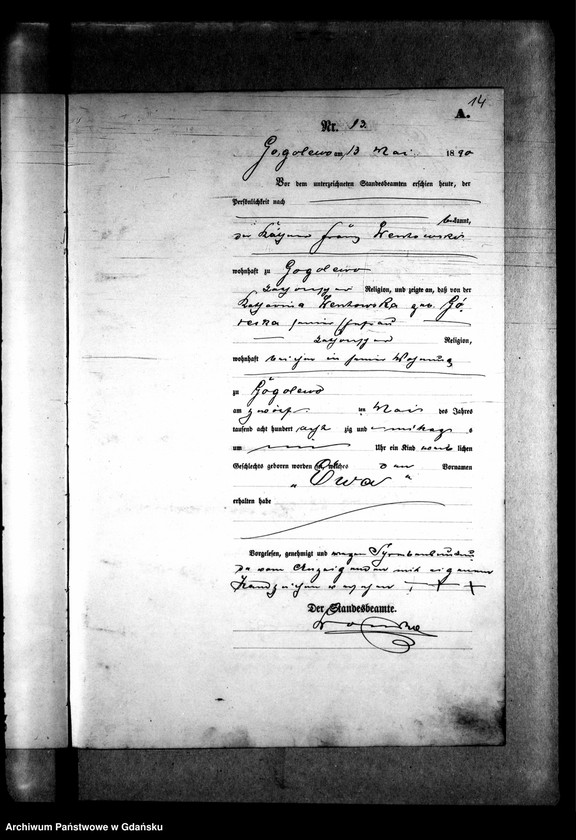 14
A.
Nr. 13.
Gogolewo am 13 Mai 1890
Vor dem unterzeichneten Standesbeamten erschien heute, der
Persönlichkeit nach
bekannt,
der Käthner Franz Wentowski
wohnhaft zu Gogolewo
katholischer Religion, und zeigte an, daß von der
Katharina Wentowska geb. Gó-
recka seiner Ehefrau
katholischer Religion,
wohnhaft bei ihm in seiner Wohnung
zu Gogolewo
am zwölften Mai des Jahres
tausend acht hundert zig und mittags
um Uhr ein Kind weiblichen
Geschlechts geboren worden sei, welches den Vornamen
„ Ewa "
erhalten habe
Vorgelesen, genehmigt und wegen
da vom Anzeigenden mit eigenem
Handzeichen versehen, +++
Der Standesbeamte.
Archiwum Państwowe w Gdańsku